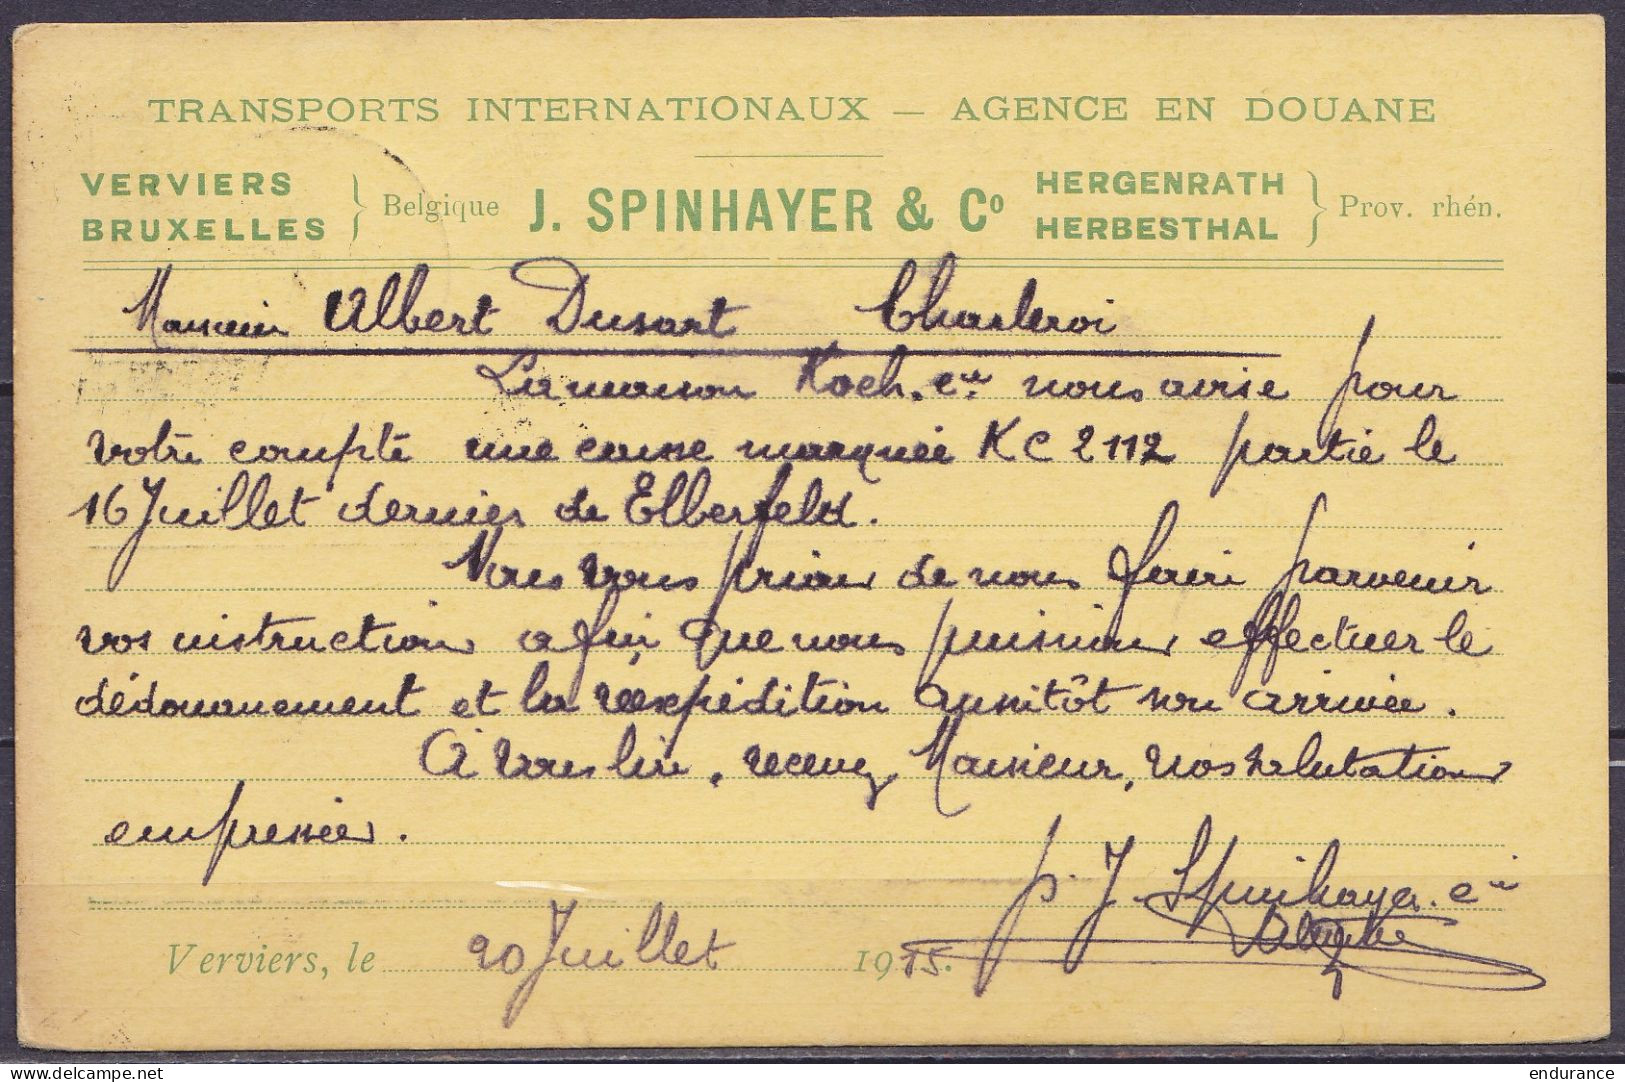 TRANSPORTS INTERNATIONAUX — AGENCE EN DOUANE
VERVIERS
BRUXELLES
} Belgique
J. SPINHAYER & Co
HERGENRATH
HERBESTHAL
} Prov. rhén.
Monsieur Albert Dusart Charleroi
La maison Koch. Cie nous avise pour
votre compte une caisse marquée KC 2112 partie le
16 Juillet dernier de Elberfeld.
Nous vous prions de nous faire parvenir
vos instructions afin que nous puissions effectuer le
dédouanement et la réexpédition aussitôt son arrivée.
A vous lire, recevez, Monsieur, nos salutations
empressées.
p. J. Spinhayer. Cie
Verviers, le 20 Juillet 1915.
delcampe.net
endurance